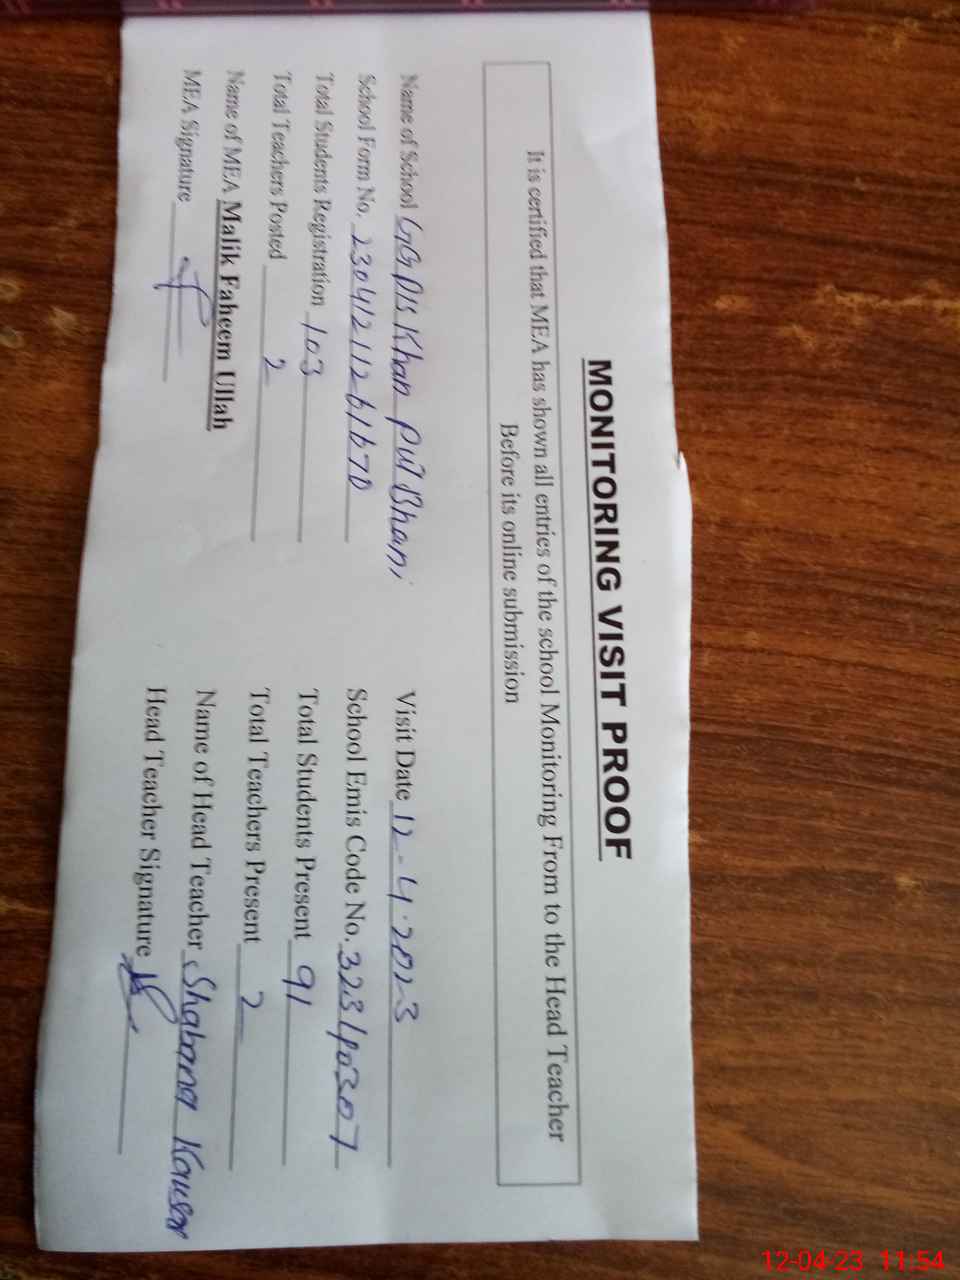 MONITORING VISIT PROOF
It is certified that MEA has shown all entries of the school Monitoring From to the Head Teacher
Before its online submission
Name of School GGPS Khan Pul Bhani
Visit Date 12-4-2023
School Form No. 23041211261670
School Emis Code No. 32310307
Total Students Registration 103
Total Students Present 91
Total Teachers Posted 2
Total Teachers Present 2
Name of MEA Malik Faheem Ullah
Name of Head Teacher Shabana Kausar
MEA Signature
Head Teacher Signature
12-04-23 11:54